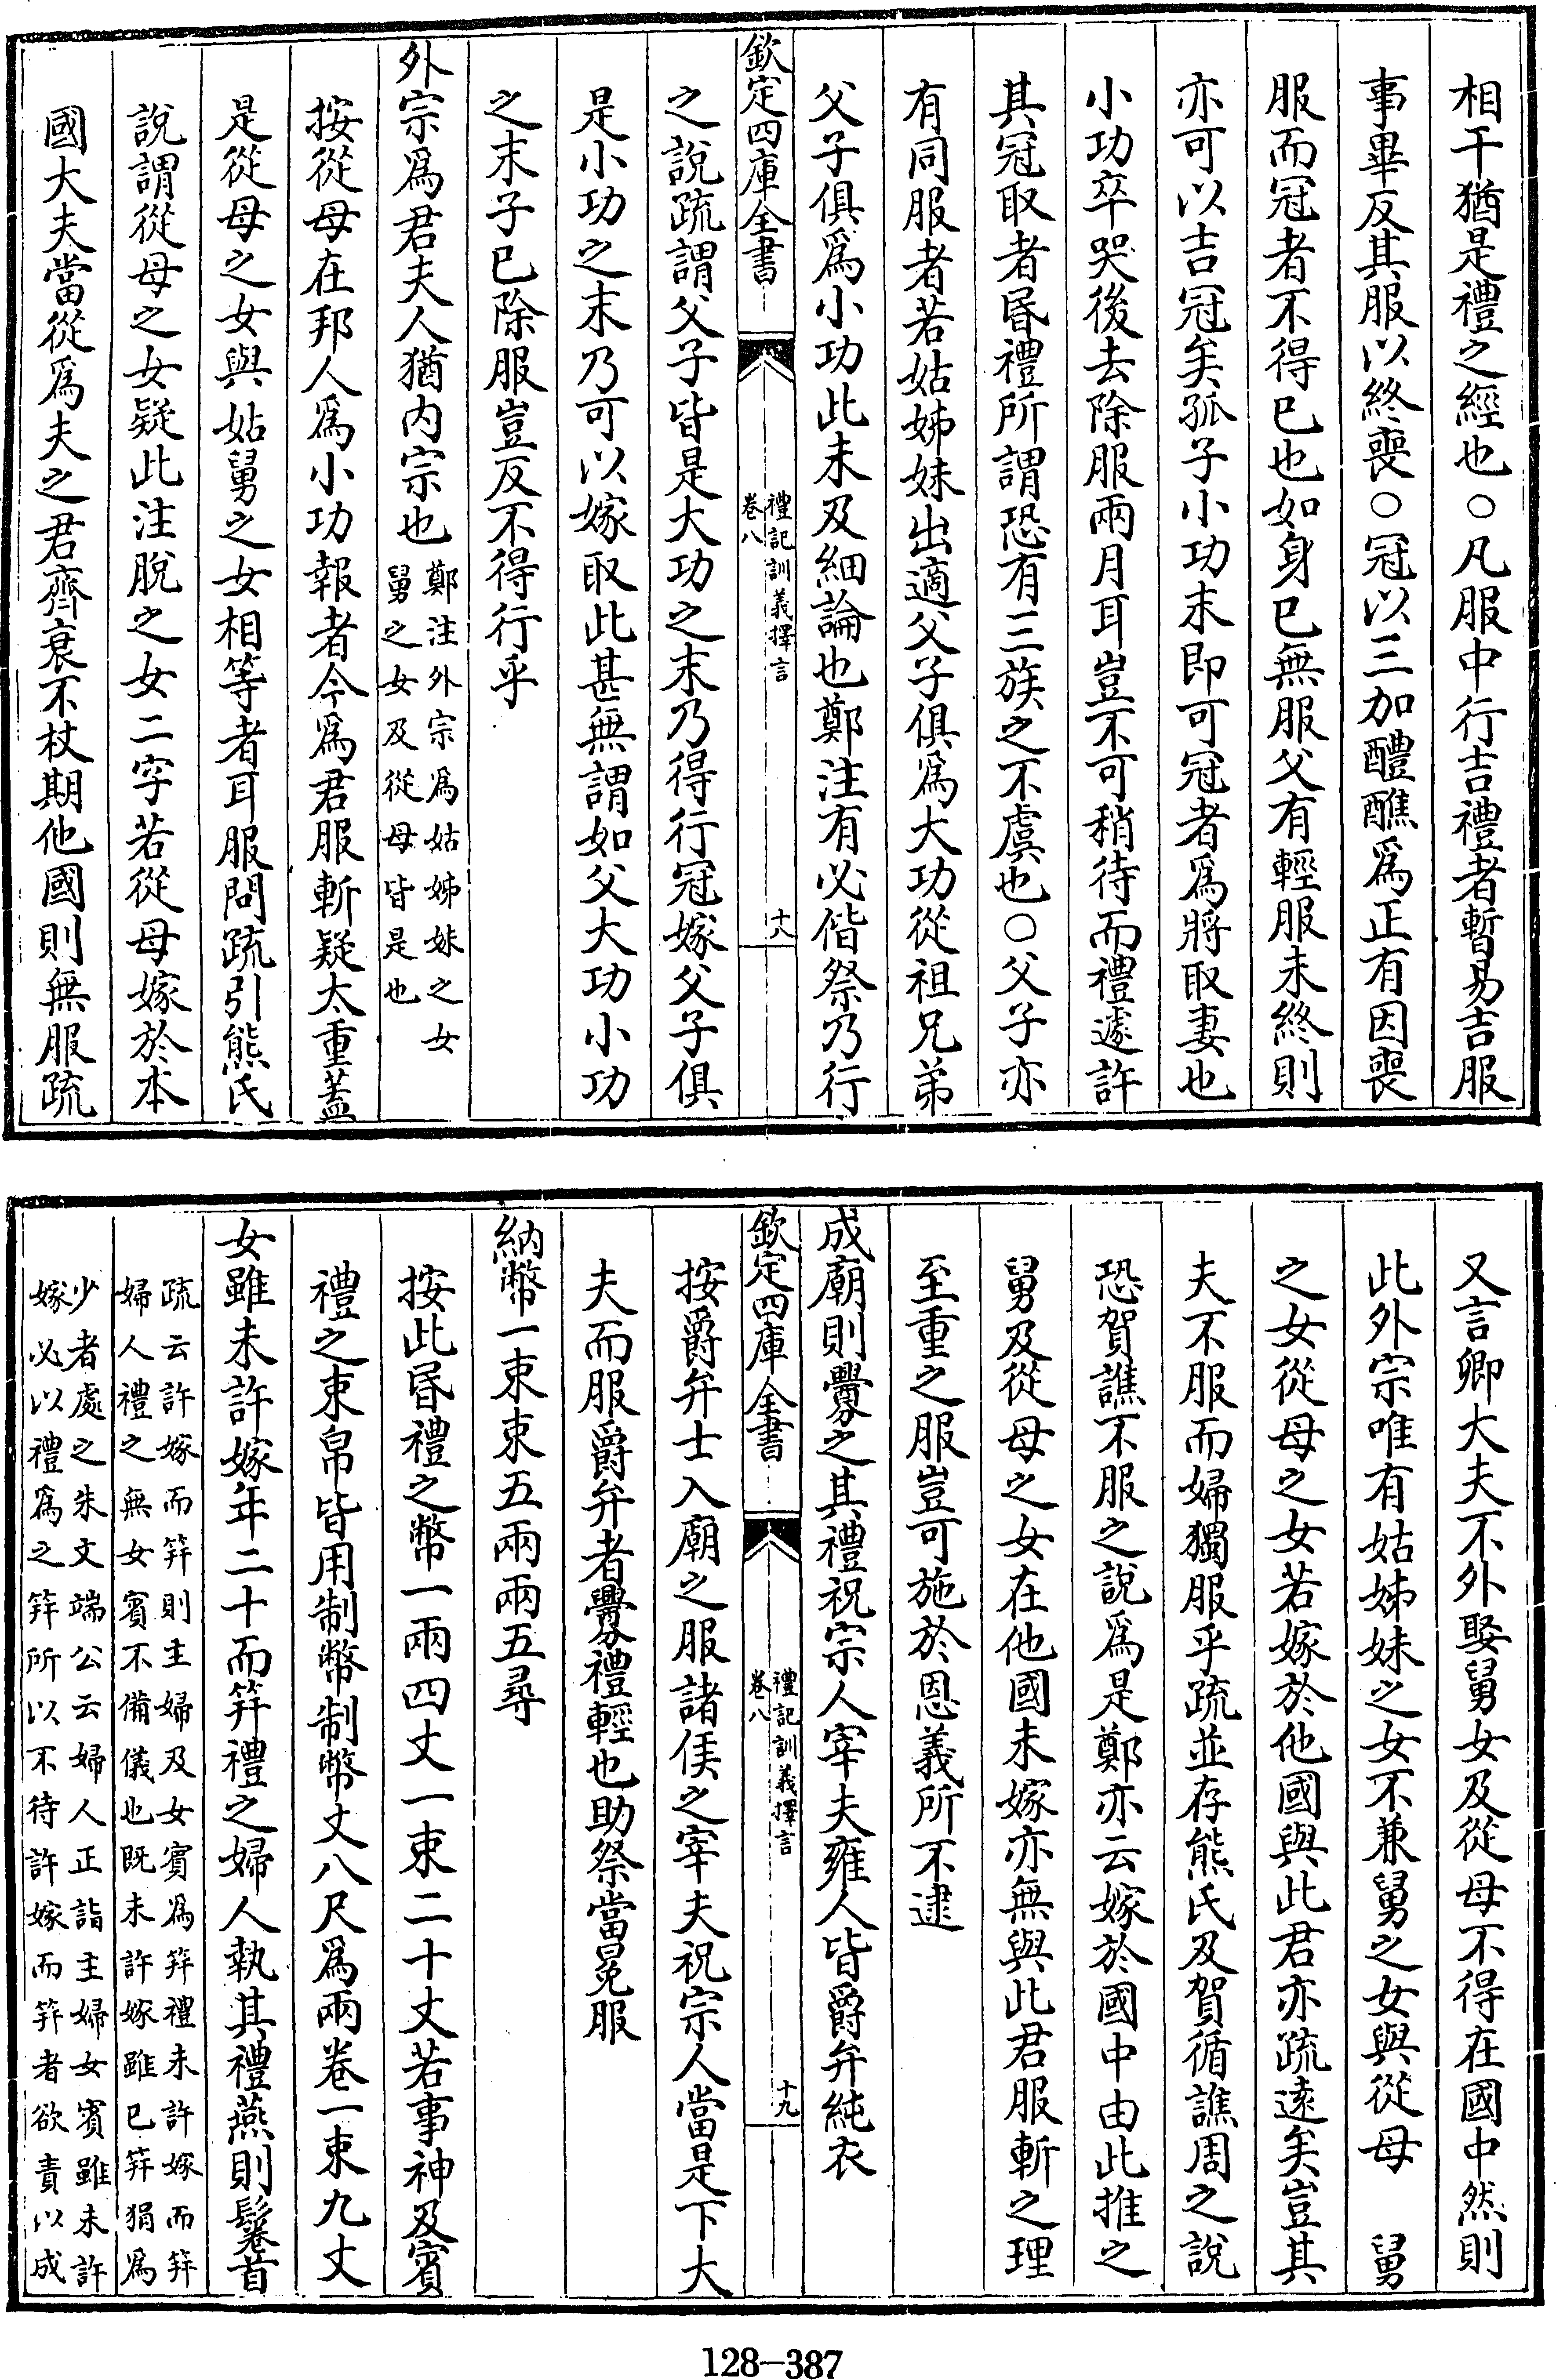 相干猶是禮之經也○凡服中行吉禮者暫易吉服
事畢反其服以終喪○冠以三加醴醮為正有因喪
服而冠者不得已也如身已無服父有輕服未終則
亦可以吉冠矣孤子小功末即可冠者為將取妻也
小功卒哭後去除服兩月耳豈不可稍待而禮遽許
其冠取者昏禮所謂恐有三族之不虞也○父子亦
有同服者若姑姊妹出適父子俱為大功從祖兄弟
父子俱為小功此未及細論也鄭注有必偕祭乃行
欽定四庫全書
禮記訓義擇言
卷八
十八
之說疏謂父子皆是大功之末乃得行冠嫁父子俱
是小功之末乃可以嫁取此甚無謂如父大功小功
之末子已除服豈反不得行乎
外宗為君夫人猶内宗也鄭注外宗為姑姊妹之女
舅之女及從母皆是也
按從母在邦人為小功報者今為君服斬疑太重蓋
是從母之女與姑舅之女相等者耳服問疏引熊氏
說謂從母之女疑此注脫之女二字若從母嫁於本
國大夫當從為夫之君齊衰不杖期他國則無服疏
又言卿大夫不外娶舅女及從母不得在國中然則
此外宗唯有姑姊妹之女不兼舅之女與從母 舅
之女從母之女若嫁於他國與此君亦疏遠矣豈其
夫不服而婦獨服乎疏並存熊氏及賀循譙周之說
恐賀譙不服之說為是鄭亦云嫁於國中由此推之
舅及從母之女在他國未嫁亦無與此君服斬之理
至重之服豈可施於恩義所不逮
成廟則釁之其禮祝宗人宰夫雍人皆爵弁純衣
欽定四庫全書
禮記訓義擇言
卷八
十九
按爵弁士入廟之服諸侯之宰夫祝宗人當是下大
夫而服爵弁者釁禮輕也助祭當冕服
納幣一束束五兩兩五尋
按此昏禮之幣一兩四丈一束二十丈若事神及賓
禮之束帛皆用制幣制幣丈八尺為兩卷一束九丈
女雖未許嫁年二十而笄禮之婦人執其禮燕則鬈首
疏云許嫁而笄則主婦及女賓為笄禮未許嫁而笄
婦人禮之無女賓不備儀也既未許嫁雖已笄猶為
少者處之朱文端公云婦人正詣主婦女賓雖未許
嫁必以禮為之笄所以不待許嫁而笄者欲責以成
128-387